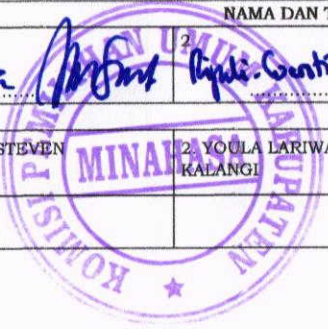 NAMA DAN T
2
STEVEN
2. YOULA LARIWA
KALANGI
KOMISI PEMILIHAN UMUM KABUPATEN
MINAHASA